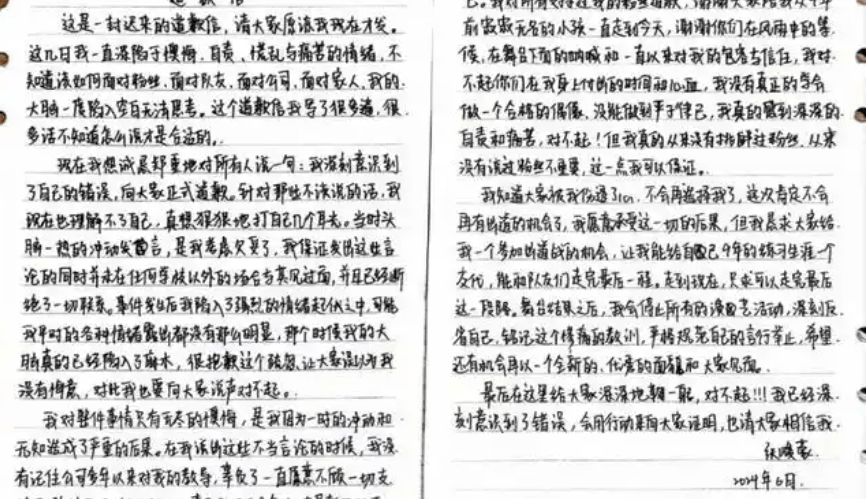 道歉信
这是一封迟来的道歉信，请大家原谅我现在才发。
这几日我一直深陷于懊悔、自责、慌乱与痛苦的情绪，不
知道该如何面对粉丝，面对队友，面对公司，面对家人，我的
大脑一度陷入空白无法思考。这个道歉信我写了很多遍，很
多话不知道怎么说才是合适的。
现在我想诚恳郑重地对所有人说一句：我深刻意识到
了自己的错误，向大家正式道歉。针对那些不该说的话，我
现在也理解不了自己，真想狠狠地打自己几个耳光。当时头
脑一热的冲动发言，是我考虑欠妥了，我保证发出这些言
论的同时并未在任何学校以外的场合与其见过面，并且已经断
绝了一切联系。事件发生后我陷入了强烈的情绪起伏之中，可能
我早时的各种情绪露出都没有那么明显，那个时候我的大
脑真的已经陷入了麻木，很抱歉这个疏忽让大家误以为我
没有悔意，对此我也要向大家说声对不起。
我对整件事情只有无尽的懊悔，是我因为一时的冲动和
无知造成了严重的后果。在我说出这些不当言论的时候，我没
有记住公司多年以来对我的教导，辜负了一直愿意不顾一切支
己。我对所有对我的粉丝道歉，谢谢大家陪我从个
前寂寂无名的小孩一直走到今天，谢谢你们在风雨中的等
候，在舞台下面的呐喊和一直以来对我的包容与信任，我对
不起你们在我身上付出的时间和心血，我没有真正的学会
做一个合格的偶像，没能做到严于律己，我真的感到深深的
自责和痛苦，对不起！但我真的从来没有排解过粉丝，从来
没有说过粉丝不重要，这一点我可以保证。
我知道大家被我伤透了心，不会再选择我了，这次肯定不会
再有出道的机会了，我愿意承受这一切的后果，但我恳求大家给
我一个参加出道战的机会，让我能给自己9年的练习生涯一个
交代，能和队友们走完最后一程。走到现在，只求可以走完最后
这一段路。舞台结束之后，我会停止所有的演艺活动，深刻反
省自己，铭记这个惨痛的教训，严格规范自己的言行举止，希望
还有机会再以一个全新的、优秀的面貌和大家见面。
最后在这里给大家深深地鞠一躬，对不起！！！我已经深
刻意识到了错误，会用行动来向大家证明，也请大家相信我。
2024年6月.